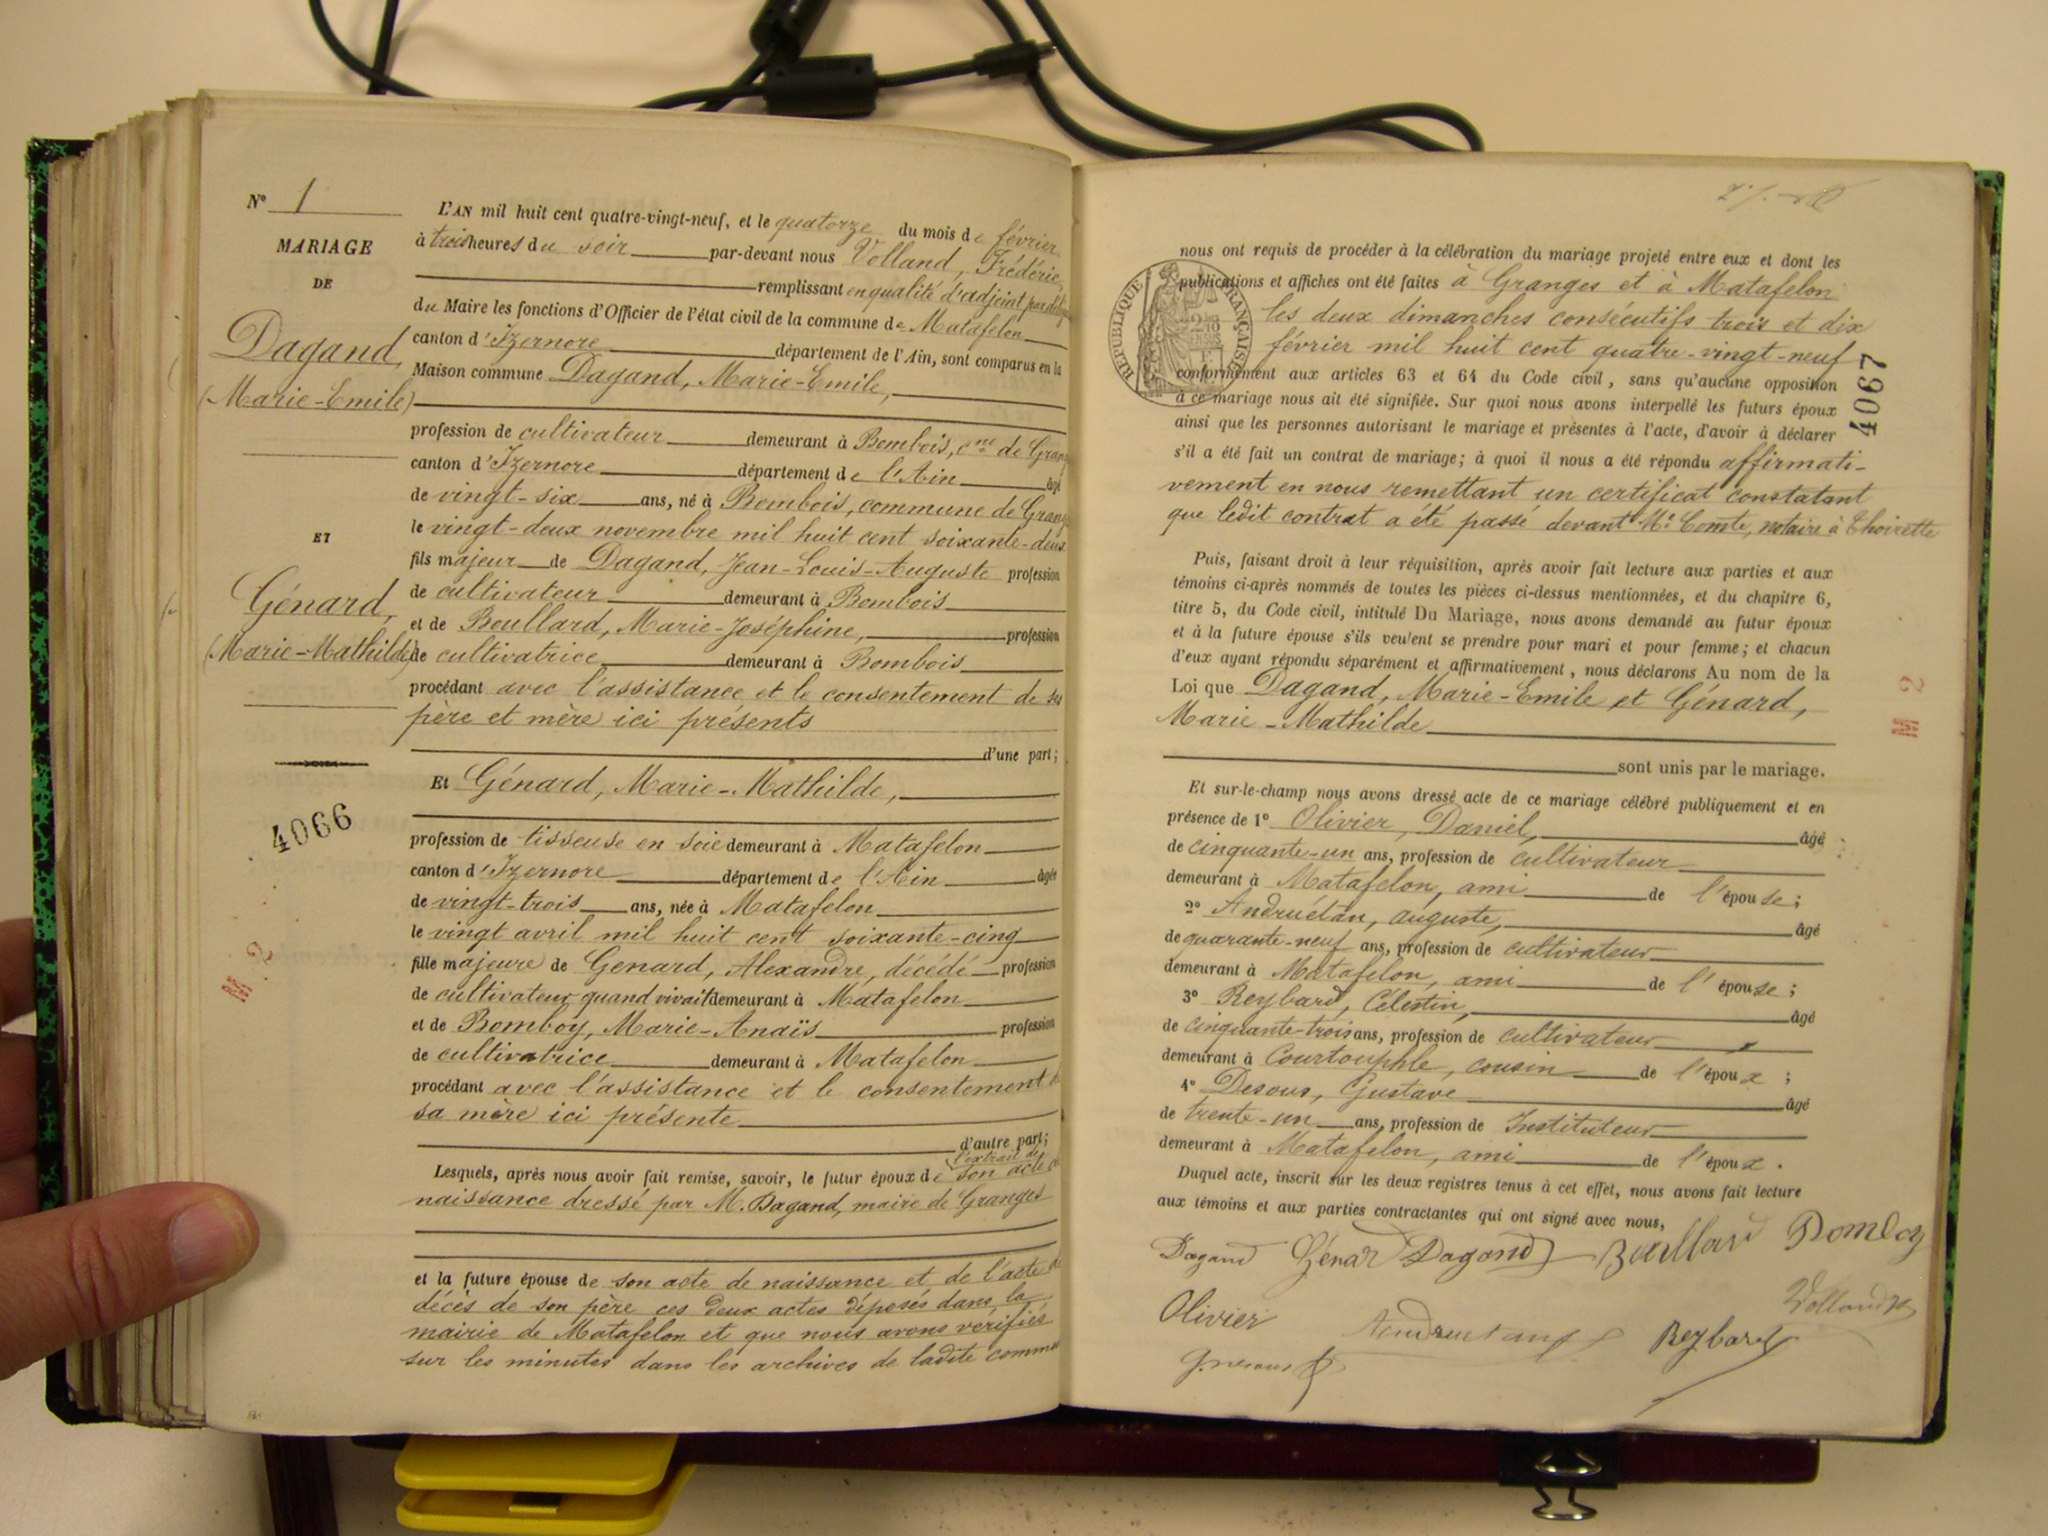 N° 1
MARIAGE
DE
Dagand,
(Marie-Emile)
ET
Génard,
(Marie-Mathilde)
4066
L'AN mil huit cent quatre-vingt-neuf, et le quatorze du mois de février
à trois heures du soir par-devant nous Volland, Frédéric,
remplissant en qualité d'adjoint par
du Maire les fonctions d'Officier de l'état civil de la commune de Matafelon
canton d'Izernore département de l'Ain, sont comparus en la
Maison commune Dagand, Marie-Emile,
profession de cultivateur demeurant à Bombois, cne de Grang
canton d'Izernore département de l'Ain âgé
de vingt-six ans, né à Bombois, commune de Grang
le vingt-deux novembre mil huit cent soixante-deux
fils majeur de Dagand, Jean-Louis-Auguste profession
de cultivateur demeurant à Bombois
et de Boullard, Marie-Joséphine, profession
de cultivatrice demeurant à Bombois
procédant avec l'assistance et le consentement de ses
père et mère ici présents
d'une part;
Et Génard, Marie-Mathilde,
profession de tisseuse en soie demeurant à Matafelon
canton d'Izernore département de l'Ain âgée
de vingt-trois ans, née à Matafelon
le vingt avril mil huit cent soixante-cinq
fille majeure de Génard, Alexandre, décédé profession
de cultivateur quand vivait demeurant à Matafelon
et de Bomboy, Marie-Anaïs profession
de cultivatrice demeurant à Matafelon
procédant avec l'assistance et le consentement de
sa mère ici présente
d'autre part;
l'extrait de
Lesquels, après nous avoir fait remise, savoir, le futur époux de son acte de
naissance dressé par M. Dagand, maire de Granges
et la future épouse de son acte de naissance et de l'acte de
décès de son père ces deux actes déposés dans la
mairie de Matafelon et que nous avons vérifiés
sur les minutes dans les archives de ladite commune
nous ont requis de procéder à la célébration du mariage projeté entre eux et dont les
publications et affiches ont été faites à Granges et à Matafelon
les deux dimanches consécutifs trois et dix
février mil huit cent quatre-vingt-neuf
conformément aux articles 63 et 64 du Code civil, sans qu'aucune opposition
à ce mariage nous ait été signifiée. Sur quoi nous avons interpellé les futurs époux
ainsi que les personnes autorisant le mariage et présentes à l'acte, d'avoir à déclarer
s'il a été fait un contrat de mariage; à quoi il nous a été répondu affirmati-
vement en nous remettant un certificat constatant
que ledit contrat a été passé devant Me Comte, notaire à Thoirette
RÉPUBLIQUE FRANÇAISE
4067
Puis, faisant droit à leur réquisition, après avoir fait lecture aux parties et aux
témoins ci-après nommés de toutes les pièces ci-dessus mentionnées, et du chapitre 6,
titre 5, du Code civil, intitulé Du Mariage, nous avons demandé au futur époux
et à la future épouse s'ils veulent se prendre pour mari et pour femme; et chacun
d'eux ayant répondu séparément et affirmativement, nous déclarons Au nom de la
Loi que Dagand, Marie-Emile et Génard,
Marie-Mathilde
sont unis par le mariage.
Et sur-le-champ nous avons dressé acte de ce mariage célébré publiquement et en
présence de 1° Olivier, Daniel, âgé
de cinquante-un ans, profession de cultivateur
demeurant à Matafelon, ami de l'épouse;
2° Andruétan, auguste, âgé
de quarante-neuf ans, profession de cultivateur
demeurant à Matafelon, ami de l'épouse;
3° Reybard, Célestin, âgé
de cinquante-trois ans, profession de cultivateur
demeurant à Courtouphle, cousin de l'époux;
4° Desous, Gustave âgé
de trente-un ans, profession de Instituteur
demeurant à Matafelon, ami de l'époux.
Duquel acte, inscrit sur les deux registres tenus à cet effet, nous avons fait lecture
aux témoins et aux parties contractantes qui ont signé avec nous,
Dagand Génard Dagand Boullard Bomboy
Olivier Andruetan Reybard Volland